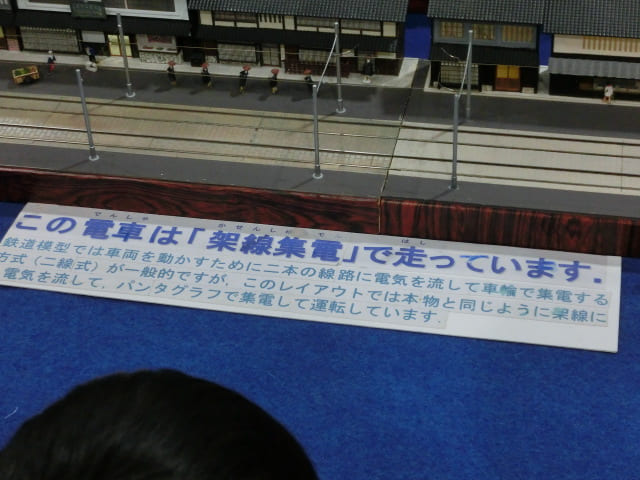 でんしゃ かせんしゅうでん はし
この電車は「架線集電」で走っています.
鉄道模型では車両を動かすために二本の線路に電気を流して車輪で集電する
方式(二線式)が一般的ですが,このレイアウトでは本物と同じように架線に
電気を流して,パンタグラフで集電して運転しています.